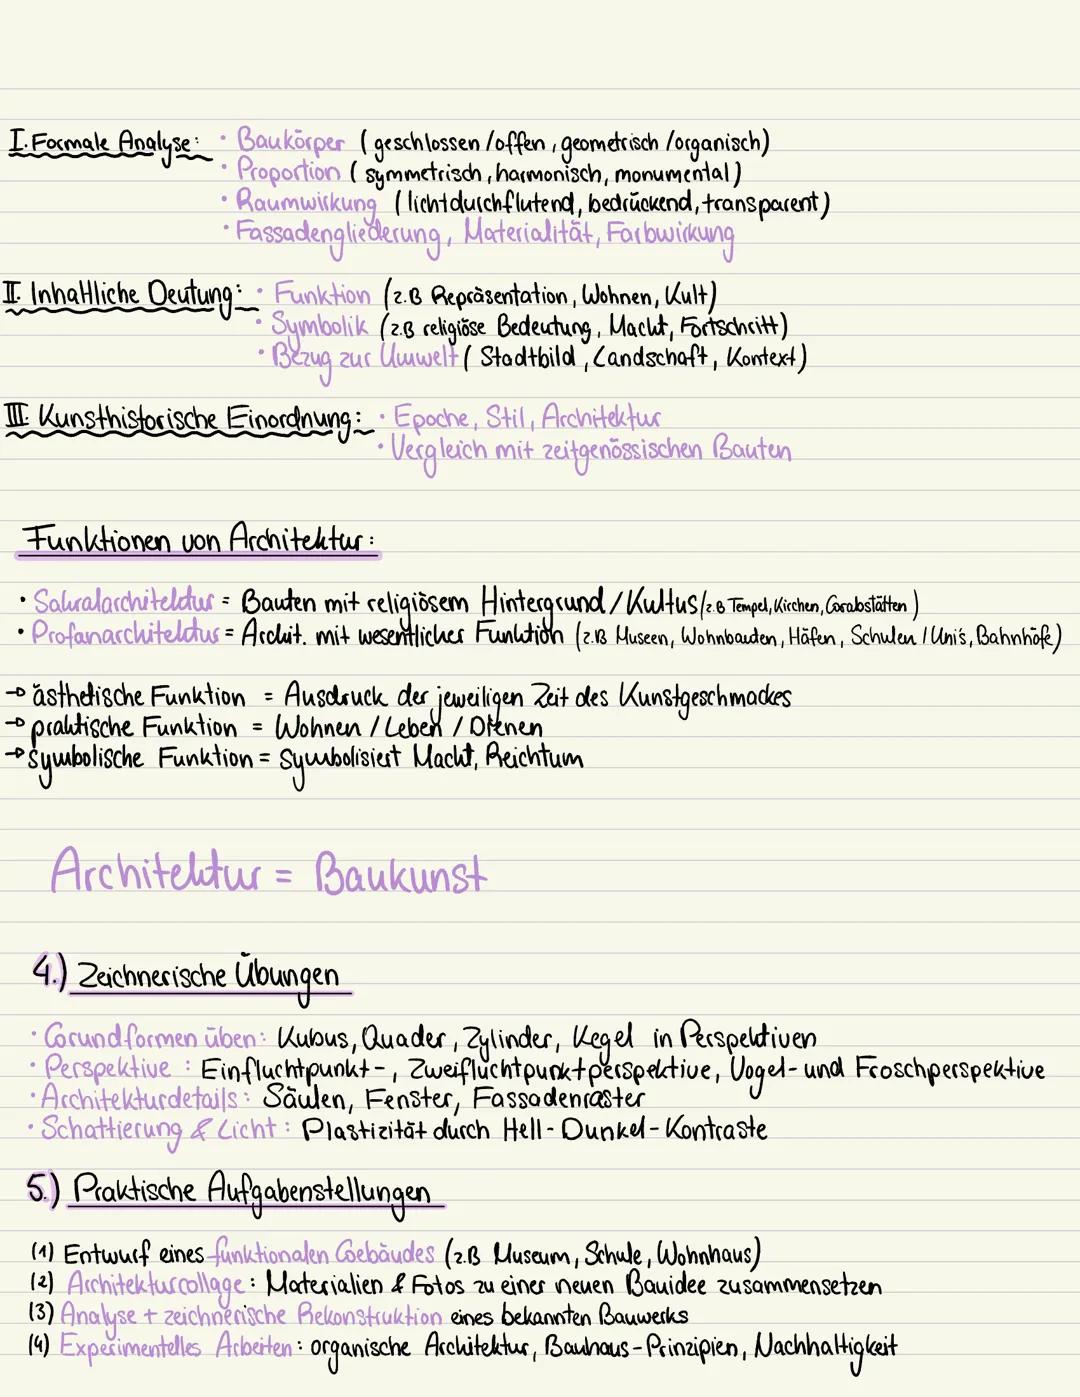 I. Formale Analyse: · Baukörper (geschlossen/offen, geometrisch/organisch)
· Proportion (symmetrisch, harmonisch, monumental)
· Raumwirkung (lichtdurchflutend, bedrückend, transparent)
· Fassadengliederung, Materialität, Farbwirkung
II. Inhaltliche Deutung: · Funktion (z.B Repräsentation, Wohnen, Kult)
· Symbolik (z.B religiöse Bedeutung, Macht, Fortschritt)
· Bezug zur Umwelt (Stadtbild, Landschaft, Kontext)
III. Kunsthistorische Einordnung: · Epoche, Stil, Architektur
· Vergleich mit zeitgenössischen Bauten
Funktionen von Architektur:
· Sakralarchitektur = Bauten mit religiösem Hintergrund/Kultus (z.B Tempel, Kirchen, Grabstätten)
· Profanarchitektur = Archit. mit wesentlicher Funktion (z.B Museen, Wohnbauden, Häfen, Schulen/Uni's, Bahnhöfe)
→ ästhetische Funktion = Ausdruck der jeweiligen Zeit des Kunstgeschmackes
→ praktische Funktion = Wohnen / Leben / Dienen
→ symbolische Funktion = Symbolisiert Macht, Reichtum
Architektur = Baukunst
4.) Zeichnerische Übungen
· Grundformen üben: Kubus, Quader, Zylinder, Kegel in Perspektiven
· Perspektive: Einfluchtpunkt-, Zweifluchtpunktperspektive, Vogel- und Froschperspektive
· Architekturdetails: Säulen, Fenster, Fassadenraster
· Schattierung & Licht: Plastizität durch Hell-Dunkel-Kontraste
5.) Praktische Aufgabenstellungen
(1) Entwurf eines funktionalen Gebäudes (z.B Museum, Schule, Wohnhaus)
(2) Architekturcollage: Materialien & Fotos zu einer neuen Bauidee zusammensetzen
(3) Analyse + zeichnerische Rekonstruktion eines bekannten Bauwerks
(4) Experimentelles Arbeiten: organische Architektur, Bauhaus-Prinzipien, Nachhaltigkeit